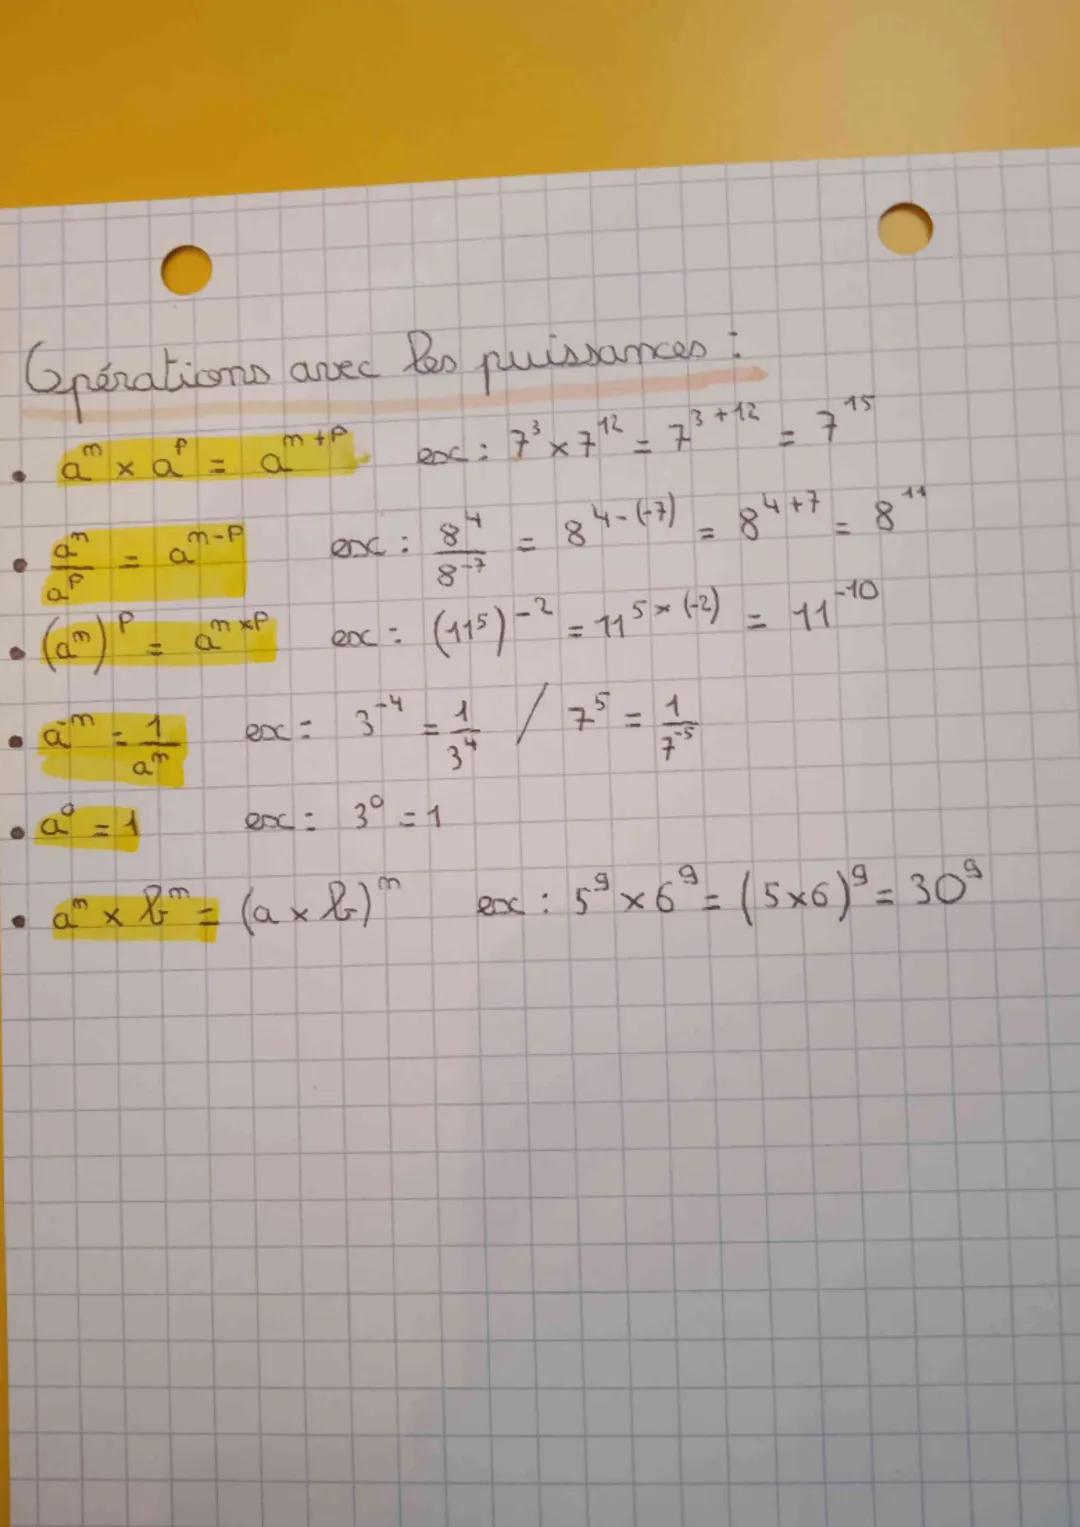 Opérations avec les puissances :
• aᵐ × aᵖ = aᵐ⁺ᵖ ex : 7³ × 7¹² = 7³⁺¹² = 7¹⁵
• aᵐ/aᵖ = aᵐ⁻ᵖ ex : 8⁴/8⁻⁷ = 8⁴⁻⁽⁻⁷⁾ = 8⁴⁺⁷ = 8¹¹
• (aᵐ)ᵖ = aᵐˣᵖ ex : (11⁵)⁻² = 11^(5 × (-2)) = 11⁻¹⁰
• a⁻ᵐ = 1/aᵐ ex : 3⁻⁴ = 1/3⁴ / 7⁵ = 1/7⁻⁵
• a⁰ = 1 ex : 3⁰ = 1
• aᵐ × bᵐ = (a × b)ᵐ ex : 5⁹ × 6⁹ = (5×6)⁹ = 30⁹